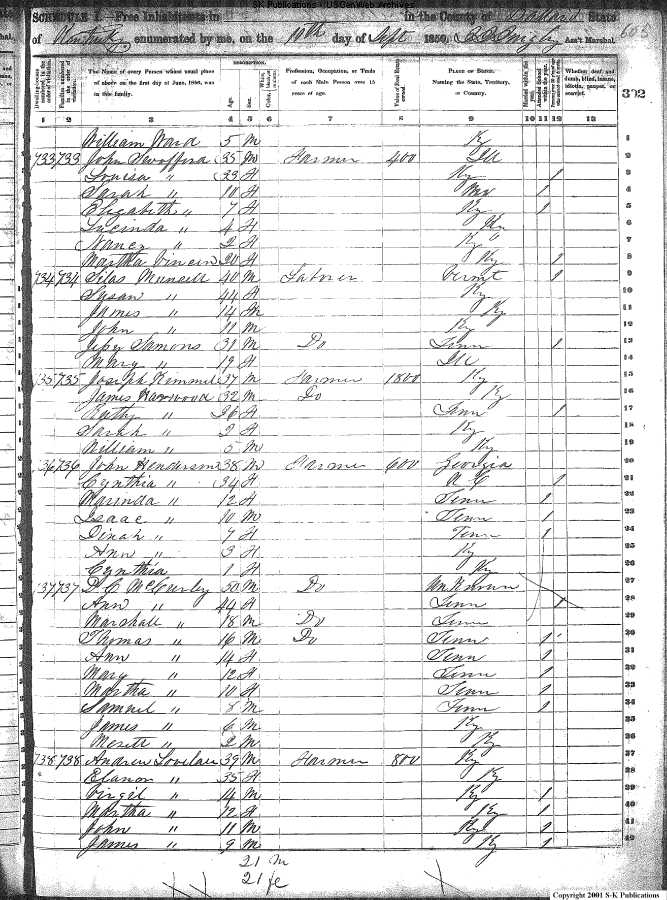 S-K Publications / USGenWeb Archives
SCHEDULE I. Free Inhabitants in in the County of Ballard State
of Kentucky enumerated by me, on the 10th day of Sept 1850. Ass't Marshal. 605
302
DESCRIPTION.
Dwelling-houses numbered in the order of visitation.
Families numbered in the order of visitation.
The Name of every Person whose usual place of abode on the first day of June, 1850, was in this family.
Age. Sex.
Profession, Occupation, or Trade of each Male Person over 15 years of age.
Value of Real Estate owned.
PLACE OF BIRTH. Naming the State, Territory, or Country.
Whether deaf and dumb, blind, insane, idiotic, pauper, or convict.
1 2 3 4 5 6 7 8 9 10 11 12 13
William Ward 5 M Ky 1
733 733 John Swofford 35 M Farmer 400 Ill 2
Louisa " 33 F Ky 1 3
Sarah " 10 F 1 4
Elizabeth " 7 F Ky 1 5
Lucinda " 4 F Ky 6
Nancy " 2 F Ky 7
Martha 20 F Ky 1 8
734 734 Silas 40 M Laborer 1 9
Susan " 44 F Ky 10
James " 14 M Ky 11
John " 11 M Ky 12
Samons 31 M Do Tenn 1 13
Mary " 19 F Ill 14
735 735 Joseph Kimmel 37 M Farmer 1800 Ky 15
James Harwood 32 M Do Ky 16
" 26 F Tenn 1 17
Sarah " 2 F Ky 18
William " 5 M Ky 19
736 736 John Henderson 38 M Farmer 600 Georgia 20
Cynthia " 34 F N C 1 21
Marinda " 12 F Tenn 1 22
Isaac " 10 M Tenn 1 23
Dinah " 7 F Tenn 1 24
Ann " 3 F Ky 25
Cynthia 1 F Ky 26
737 737 D C McCurley 50 M Do Unknown 27
Ann " 44 F Tenn 1 28
Marshall " 18 M Do Tenn 29
Thomas " 16 M Do Tenn 1 30
Ann " 14 F Tenn 1 31
Mary " 12 F Tenn 1 32
Martha " 10 F Tenn 1 33
Samuel " 8 M Tenn 1 34
James " 6 M Ky 35
" 2 M Ky 36
738 738 Andrew Lovelace 39 M Farmer 800 Ky 37
Elanor " 35 F Ky 38
Virgil " 14 M Ky 1 39
Martha " 12 F Ky 1 40
John " 11 M Ky 1 41
James " 9 M Ky 1 42
21 M
21 fe
Copyright 2001 S-K Publications